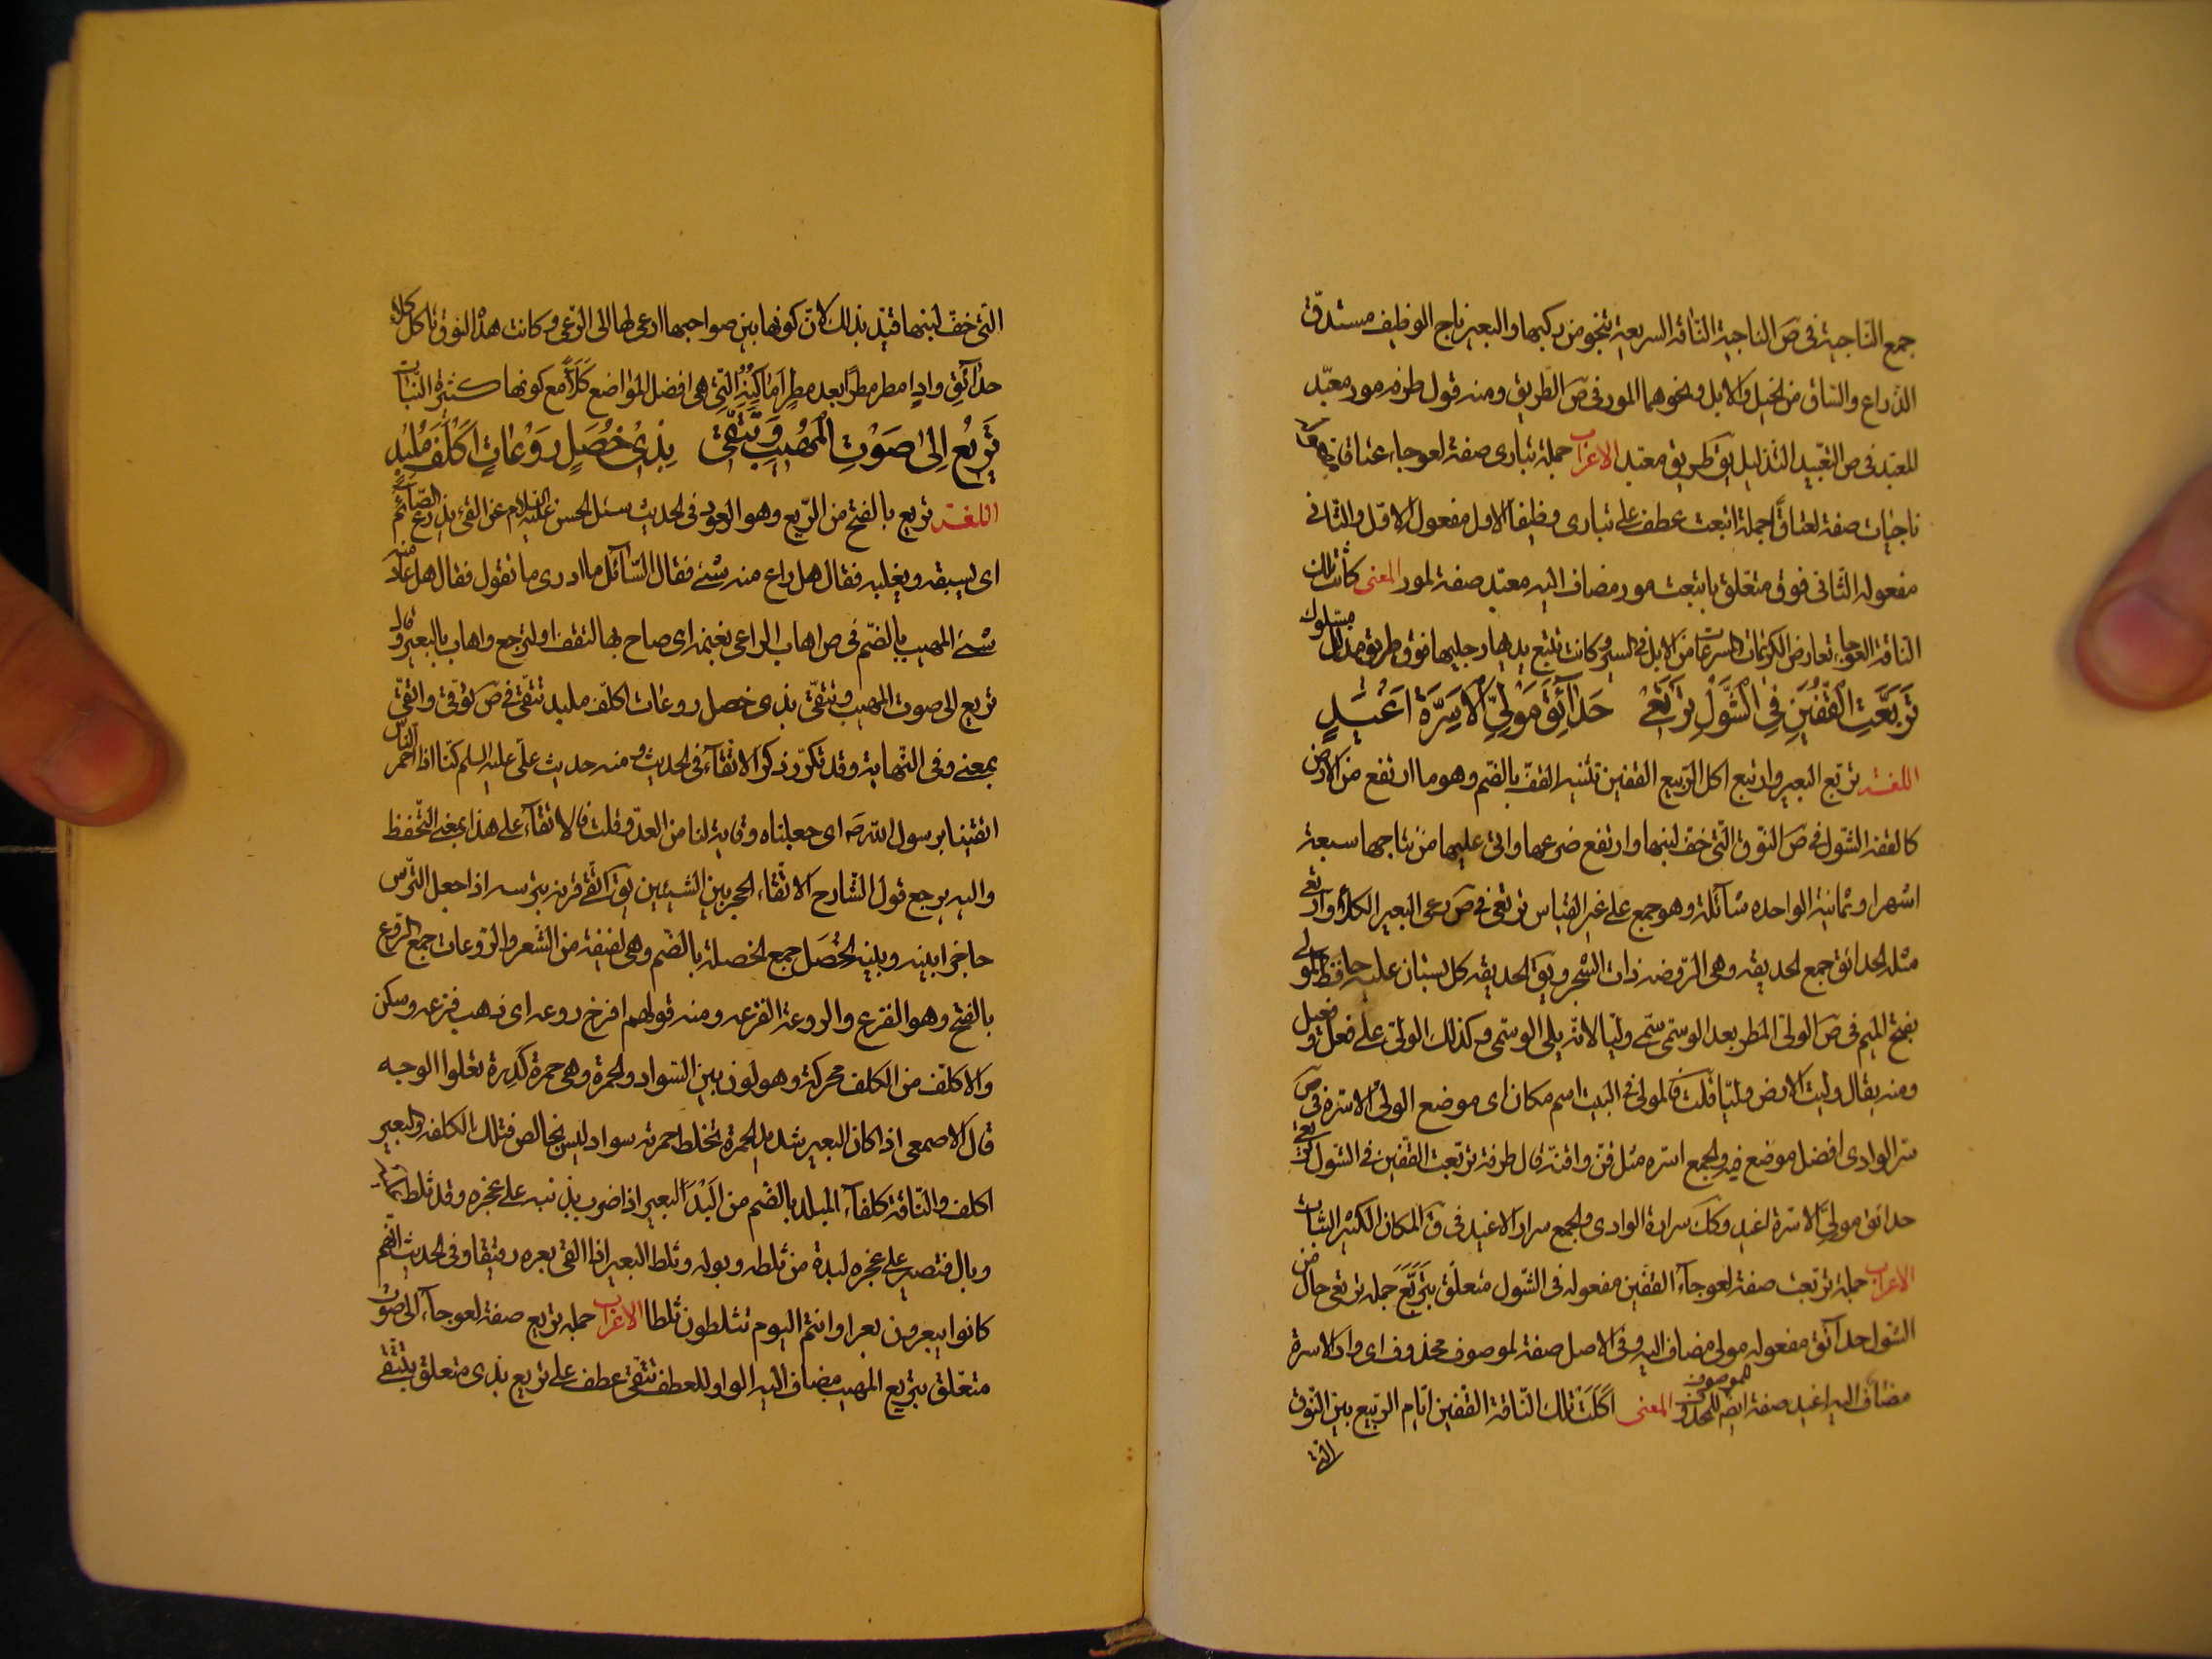 جمع الناجية فى ص الناجية الناقة السريعة تنجو من ركبها والبعير ناج الوظيف مستدقّ
الذراع والساق من الخيل والابل ونحوهما المور فى ص الطريق ومنه قول طرفه مور معبّد
المعبّد فى ص التعبيد التذليل يق طريق معبد الاعراب جملة تبارى صفة لعوجاء عتاقا
ناجيات صفة لعتاقا جملة اتبعت عطف على تبارى وظيفا الاول مفعول الاول والثانى
مفعوله الثانى فوق متعلق باتبعت مور مضاف اليه معبّد صفة لمور المعنى كانت تلك
الناقة العوجاء تعارض الكريمات المسرعات من الابل فى السير وكانت تتبع يديها رجليها فوق طريق مذلل مسلوك
تَرَبَّعَتِ القُفَّيْنِ فِى الشَّوْلِ تَرْتَعِى حَدَآئِقَ مَوْلِىِّ الاَسِرَّةِ اَغْيَدِ
اللغة تربّع البعير وارتبع اكل الربيع القفين تثنيه القفّ بالضّم وهو ما ارتفع من الارض
كالقفه الشّول فى ص النّوق الّتى خفّ لبنها وارتفع ضرعها واتى عليها من نتاجها سبعة
اشهر او ثمانية الواحده شآئلة وهو جمع على غير القياس ترتعى فى ص رعى البعير الكلأ وارتعى
مثله الحدائق جمع الحديقه وهى الرّوضه ذات الشجر ويق الحديقه كل بستان عليه حائط المولى
بفتح الميم فى ص الولىّ المطر بعد الوسمّى سمّى وليّا لانّه يلى الوسمّى وكذلك الولى على فعل وفعيل
ومنه يقال وليت الارض وليّا قلت فالمولى فى البيت اسم مكان اى موضع الولى الاسّرة فى ص
سرّ الوادى افضل موضع فيه والجمع اسره مثل قنّ واقنّة قال طرفة تربّعت القفّين فى الشول ترتعى
حدائق مولىّ الاسّرة اغيد وكك سرارة الوادى والجمع سرار الاغيد فى ق المكان الكثير النبات
الاعراب جملة تربّعت صفة لعوجآء القفّين مفعوله فى الشّول متعلّق بتَرَبَّعَ جمله ترتعى حال من
الشول حدآئق مفعوله مولى مضاف اليه وفى الاصل صفة لموصوف محذوف اى واد الاسرة
مضاف اليه اغيد صفة ايضا للموصوف المحذوف المعنى اَكَلَتْ تلك النّاقة القفّين ايّام الرّبيع بين النّوق
الّتى
التى خفّ لبنها قيّد بذلك لانّ كونها بين صواحبها ادعى لها الى الرّعى وكانت هذه النوق تاكل كلاء
حدآئق وادٍ امطر مطراً بعد مطرٍ اَماكِنِهِ الّتى هى افضل المواضع كَلَأً مع كونها كثيرة النّبات
تَرِيْعُ اِلىٰ صَوْتِ المُهِيْبِ وَتَتَّقِى بِذِىْ خُصَلٍ رَوْعٰاتِ اَكْلَفَ مُلْبِدِ
اللغة تريع بالفتح من الرّيع وهو العود فى الحديث سئل الحسن عليه السلام عن القى يذرع الصّآئم
اى يسبقه ويغلبه فقال هل راع منه شئ فقال السّآئل ما ادرى ما تقول فقال هل عاد منه
شئ المهيب بالضّم فى ص اهاب الراعى بغنمه اى صاح بها لتقف او لترجع واهاب بالبعير قال
تريع الى صوت المهيب وتتقّى بذى خصل روعات اكلف ملبد تتقّى فى ص توقّى واتقى
بمعنى وفى النّهاية وقد تكرّر ذكر الاتقآء فى الحديث ومنه حديث علىّ عليه السلم كنّا اذا احمر النّاس
اتقينا برسول اللّه ص اى جعلناه وقاية لنا من العدّو قلت فالاتقآء على هذا بمعنى التّحفظ
واليه يرجع قول الشارح الاتّقاء الحجر بين الشيئين يق اتقى قرنه بترسه اذا جعل التّرس
حاجزا بينه وبينه الخُصَل جمع الخصلة بالضّم وهى لفيفة من الشّعر والرّوعات جمع الرّوع
بالفتح وهو الفزع والروعة الفزعه ومنه قولهم افرخ روعه اى ذهب فزعه وسكن
والاكلف من الكلف محركة وهو لون بين السّواد والحمرة وهى حمرة كَدِرة تعلوا الوجه
قال الاصمعى اذا كان البعير شديد الحمرة تخلط حمرته سواد ليس بخالص فتلك الكلفه والبعير
اكلف والنّاقة كلفآء الملبد بالضّم من اَلْبَدَ البعير اذا ضرب بذنبه على عجزه وقد ثلط
وبال فتصير على عجزه لبدة من ثلطه وبوله وثلط البعير اذا القى بعره رقيقا وفى الحديث انّهم
كانوا يبعرون بعرا وانتم اليوم تثلطون ثلطا الاعراب جمله تريع صفة لعوجآء الى صوت
متعلّق بتريع المهيب مضاف اليه الواو للعطف تتّقى عطف على تريع بذى متعلق بتتقى